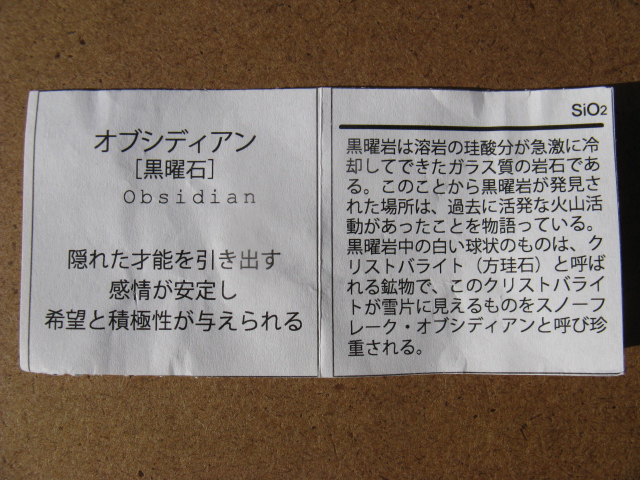 オブシディアン
[黒曜石]
Obsidian
隠れた才能を引き出す
感情が安定し
希望と積極性が与えられる
SiO2
黒曜岩は溶岩の珪酸分が急激に冷
却してできたガラス質の岩石であ
る。このことから黒曜岩が発見さ
れた場所は、過去に活発な火山活
動があったことを物語っている。
黒曜岩中の白い球状のものは、ク
リストバライト（方珪石）と呼ば
れる鉱物で、このクリストバライ
トが雪片に見えるものをスノーフ
レーク・オブシディアンと呼び珍
重される。